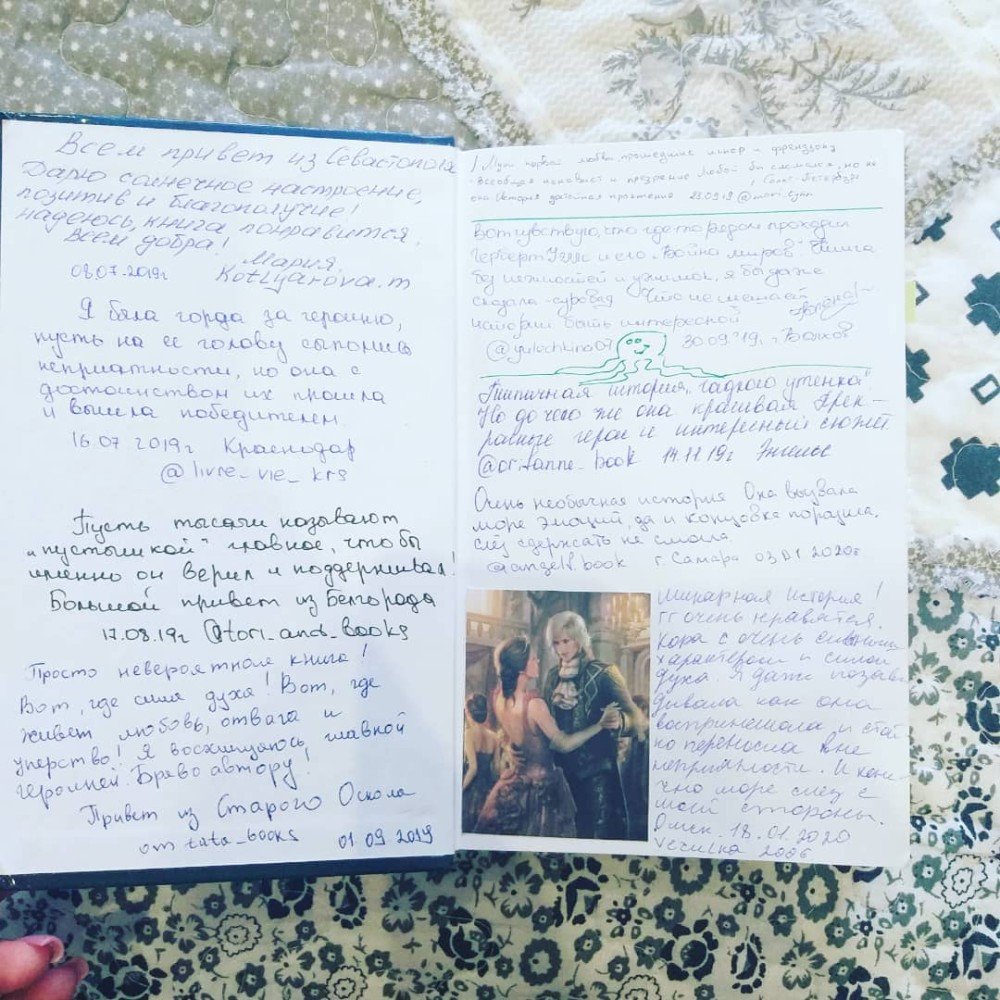 Всем привет из Севастополя
Дарю солнечное настроение,
позитив и благополучие!
надеюсь, книга понравится.
Всем добра!
Мария.
08.07.2019г Kotlyarova.m
Я была горда за героиню,
пусть на ее голову сыпались
неприятности, но она с
достоинством их прошла
и вышла победителем
16.07.2019г Краснодар
@livre_vie_krs
Пусть тысячи называют
"пустышкой" главное, чтобы
именно он верил и поддерживал!
Большой привет из Белгорода
17.08.19г @tori_and_books
Просто невероятная книга!
Вот, где сила духа! Вот, где
живет любовь, отвага и
упёрство! Я восхищаюсь главной
героиней. Браво автору!
Привет из Старого Оскола
от tata_books 01.09.2019
любовь
всеобщая ненависть и презрение любой бы сломался, но не
она. История достойна прочтения 23.09.19 Санкт-Петербург
Вот чувствую, что где то рядом проходил
Герберт Уэллс и его "Война миров". Книга
без нежностей и ужимок, я бы даже
сказала - суровая Что не мешает
истории быть интересной
@yulochkina07 30.09.19г. г. Волхов
Типичная история "гадкого утенка".
Но до чего же она красивая. Прек-
расные герои и интересный сюжет
@ori.fanne_book 14.11.19г Энгельс
Очень необычная история Она вызвала
море эмоций, да и концовка поразила,
слёз сдержать не смогла.
@angel8.book г. Самара 03.01 2020г
Шикарная история!
ГГ очень нравятся.
Кора с очень сильным
характером и силой
духа. Я даже позави
довала как она
воспринимала и стой
ко переносила все
неприятности. И коне
чно море слез с
моей стороны.
Омск. 18.01.2020
2006